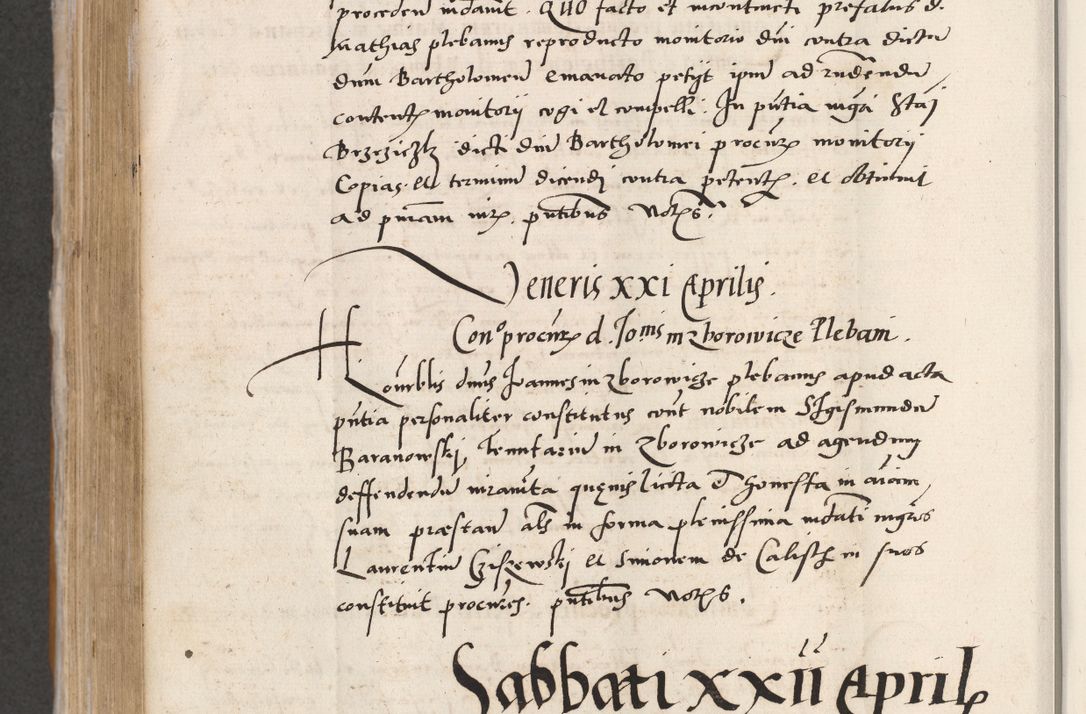 procedere mandavit. Quo facto et incontinenti prefatus d.
Mathias plebanus reproducto monitorio dni contra dictu
dnm Bartholomeu emanato petyt ipm ad
content monitorii cogi et compelli. In pntia mgri Stai
dicti dni Bartholomei procur monitorii
Copias et terminu dicendi contra petent. et obtinuit
ad primam iur. pntibus Notrs.
Veneris xxi Aprilis.
Cono procur d. Joannis in Zborowicze Plebani.
Honrblis dnus Joannes in Zborowicze plebanus apud acta
pntia personaliter constitutus cont nobilem Sigismundu
Baranowskij, tenutariu in Zborowicze ad agendum
deffendendu iuramta quevis licita et honesta in aiam
suam præstan als in forma plenissima mdati mgros
Laurentiu Cziszewskj et Simonem de Calisch in suos
constituit procures. pntibus Notrs.
Sabbati xxii April